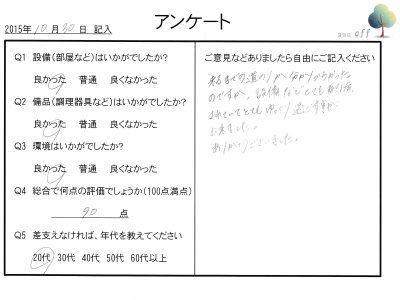 アンケート
2015年 10 月 30 日 記入
off
Q1 設備(部屋など)はいかがでしたか?
良かった 普通 良くなかった
Q2 備品(調理器具など)はいかがでしたか?
良かった 普通 良くなかった
Q3 環境はいかがでしたか?
良かった 普通 良くなかった
Q4 総合で何点の評価でしょうか(100点満点)
90 点
Q5 差支えなければ、年代を教えてください
20代 30代 40代 50代 60代以上
ご意見などありましたら自由にご記入ください
来るまでの道のりが分かりづらかった
のですが、設備などとても充実
されていてとてもゆっくり過ごす事が
出来ました。
ありがとうございました。